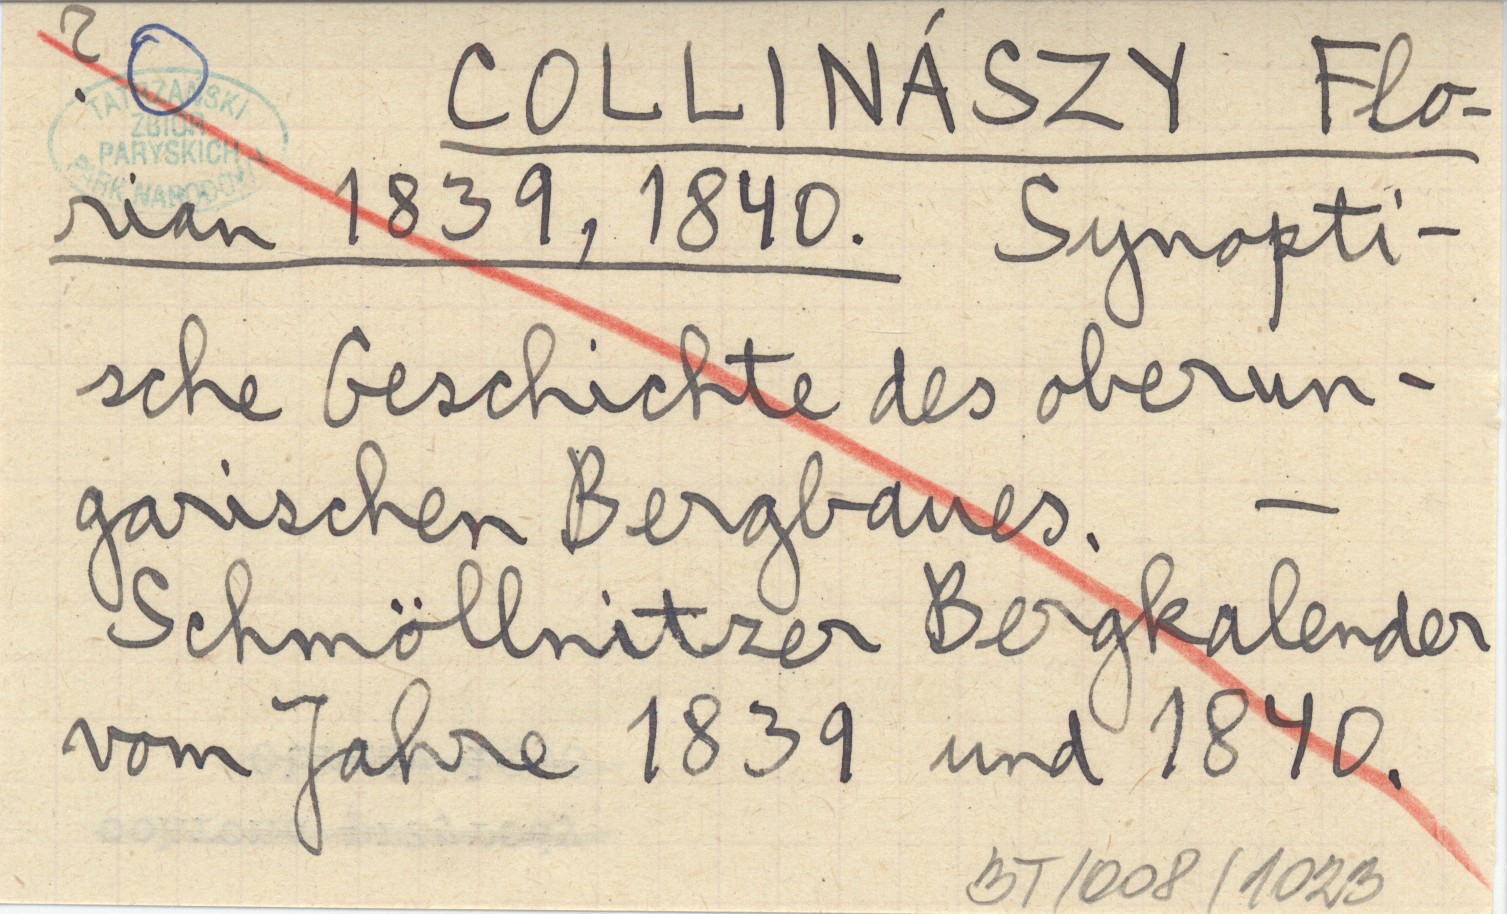 ?
TATRZAŃSKI
ZBIÓR
PARYSKICH
PARK NARODOWY
COLLINÁSZY Flo-
rian 1839, 1840. Synopti-
sche Geschichte des oberun-
garischen Bergbaues. —
Schmöllnitzer Bergkalender
vom Jahre 1839 und 1840.
BT/008/1023